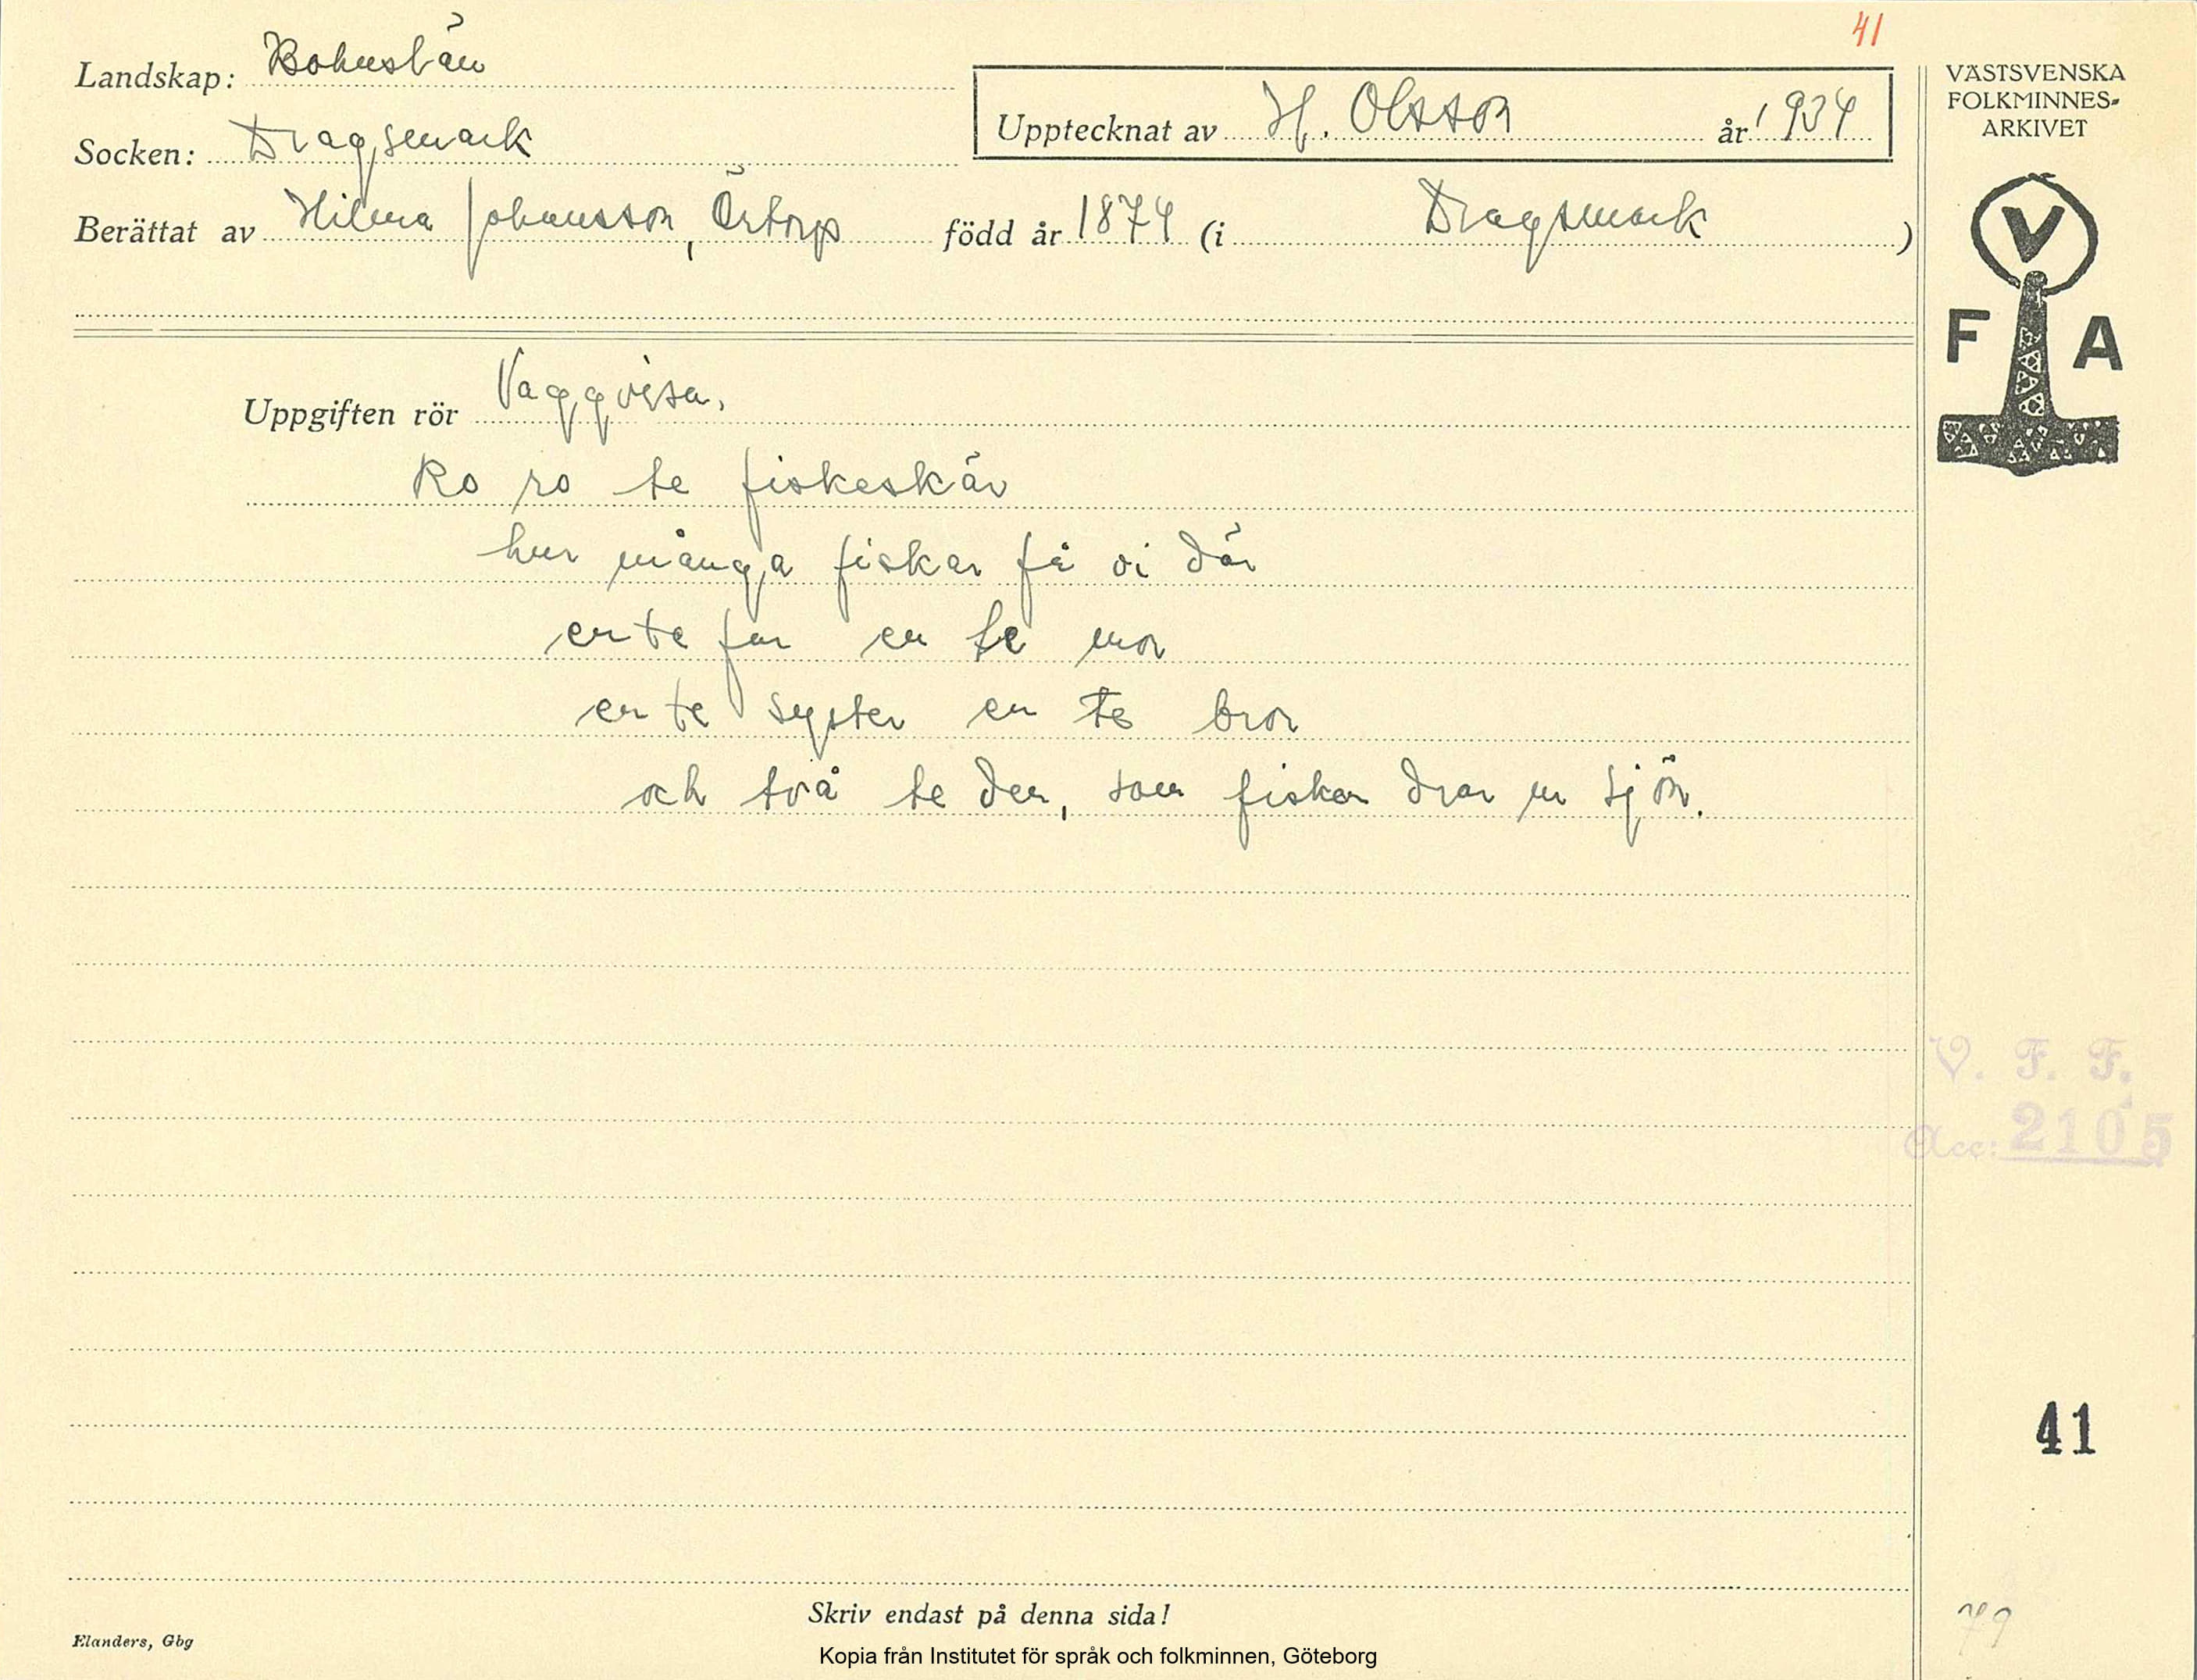 41
Landskap: Bohuslän
Socken: Dragsmark
Upptecknat av H. Olsson år 1934
Berättat av Hilma Johansson, Örtorp född år 1874 (i Dragsmark)
VÄSTSVENSKA
FOLKMINNES-
ARKIVET
V
F A
Uppgiften rör Vaggvisa.
Ro ro te fiskeskär
hur många fiskar få vi där
en te far en te mor
en te syster en te bror
och två te den, som fisken drar ur sjön.
V. F. F.
Acc: 2105
41
79
Skriv endast på denna sida!
Elanders, Gbg
Kopia från Institutet för språk och folkminnen, Göteborg